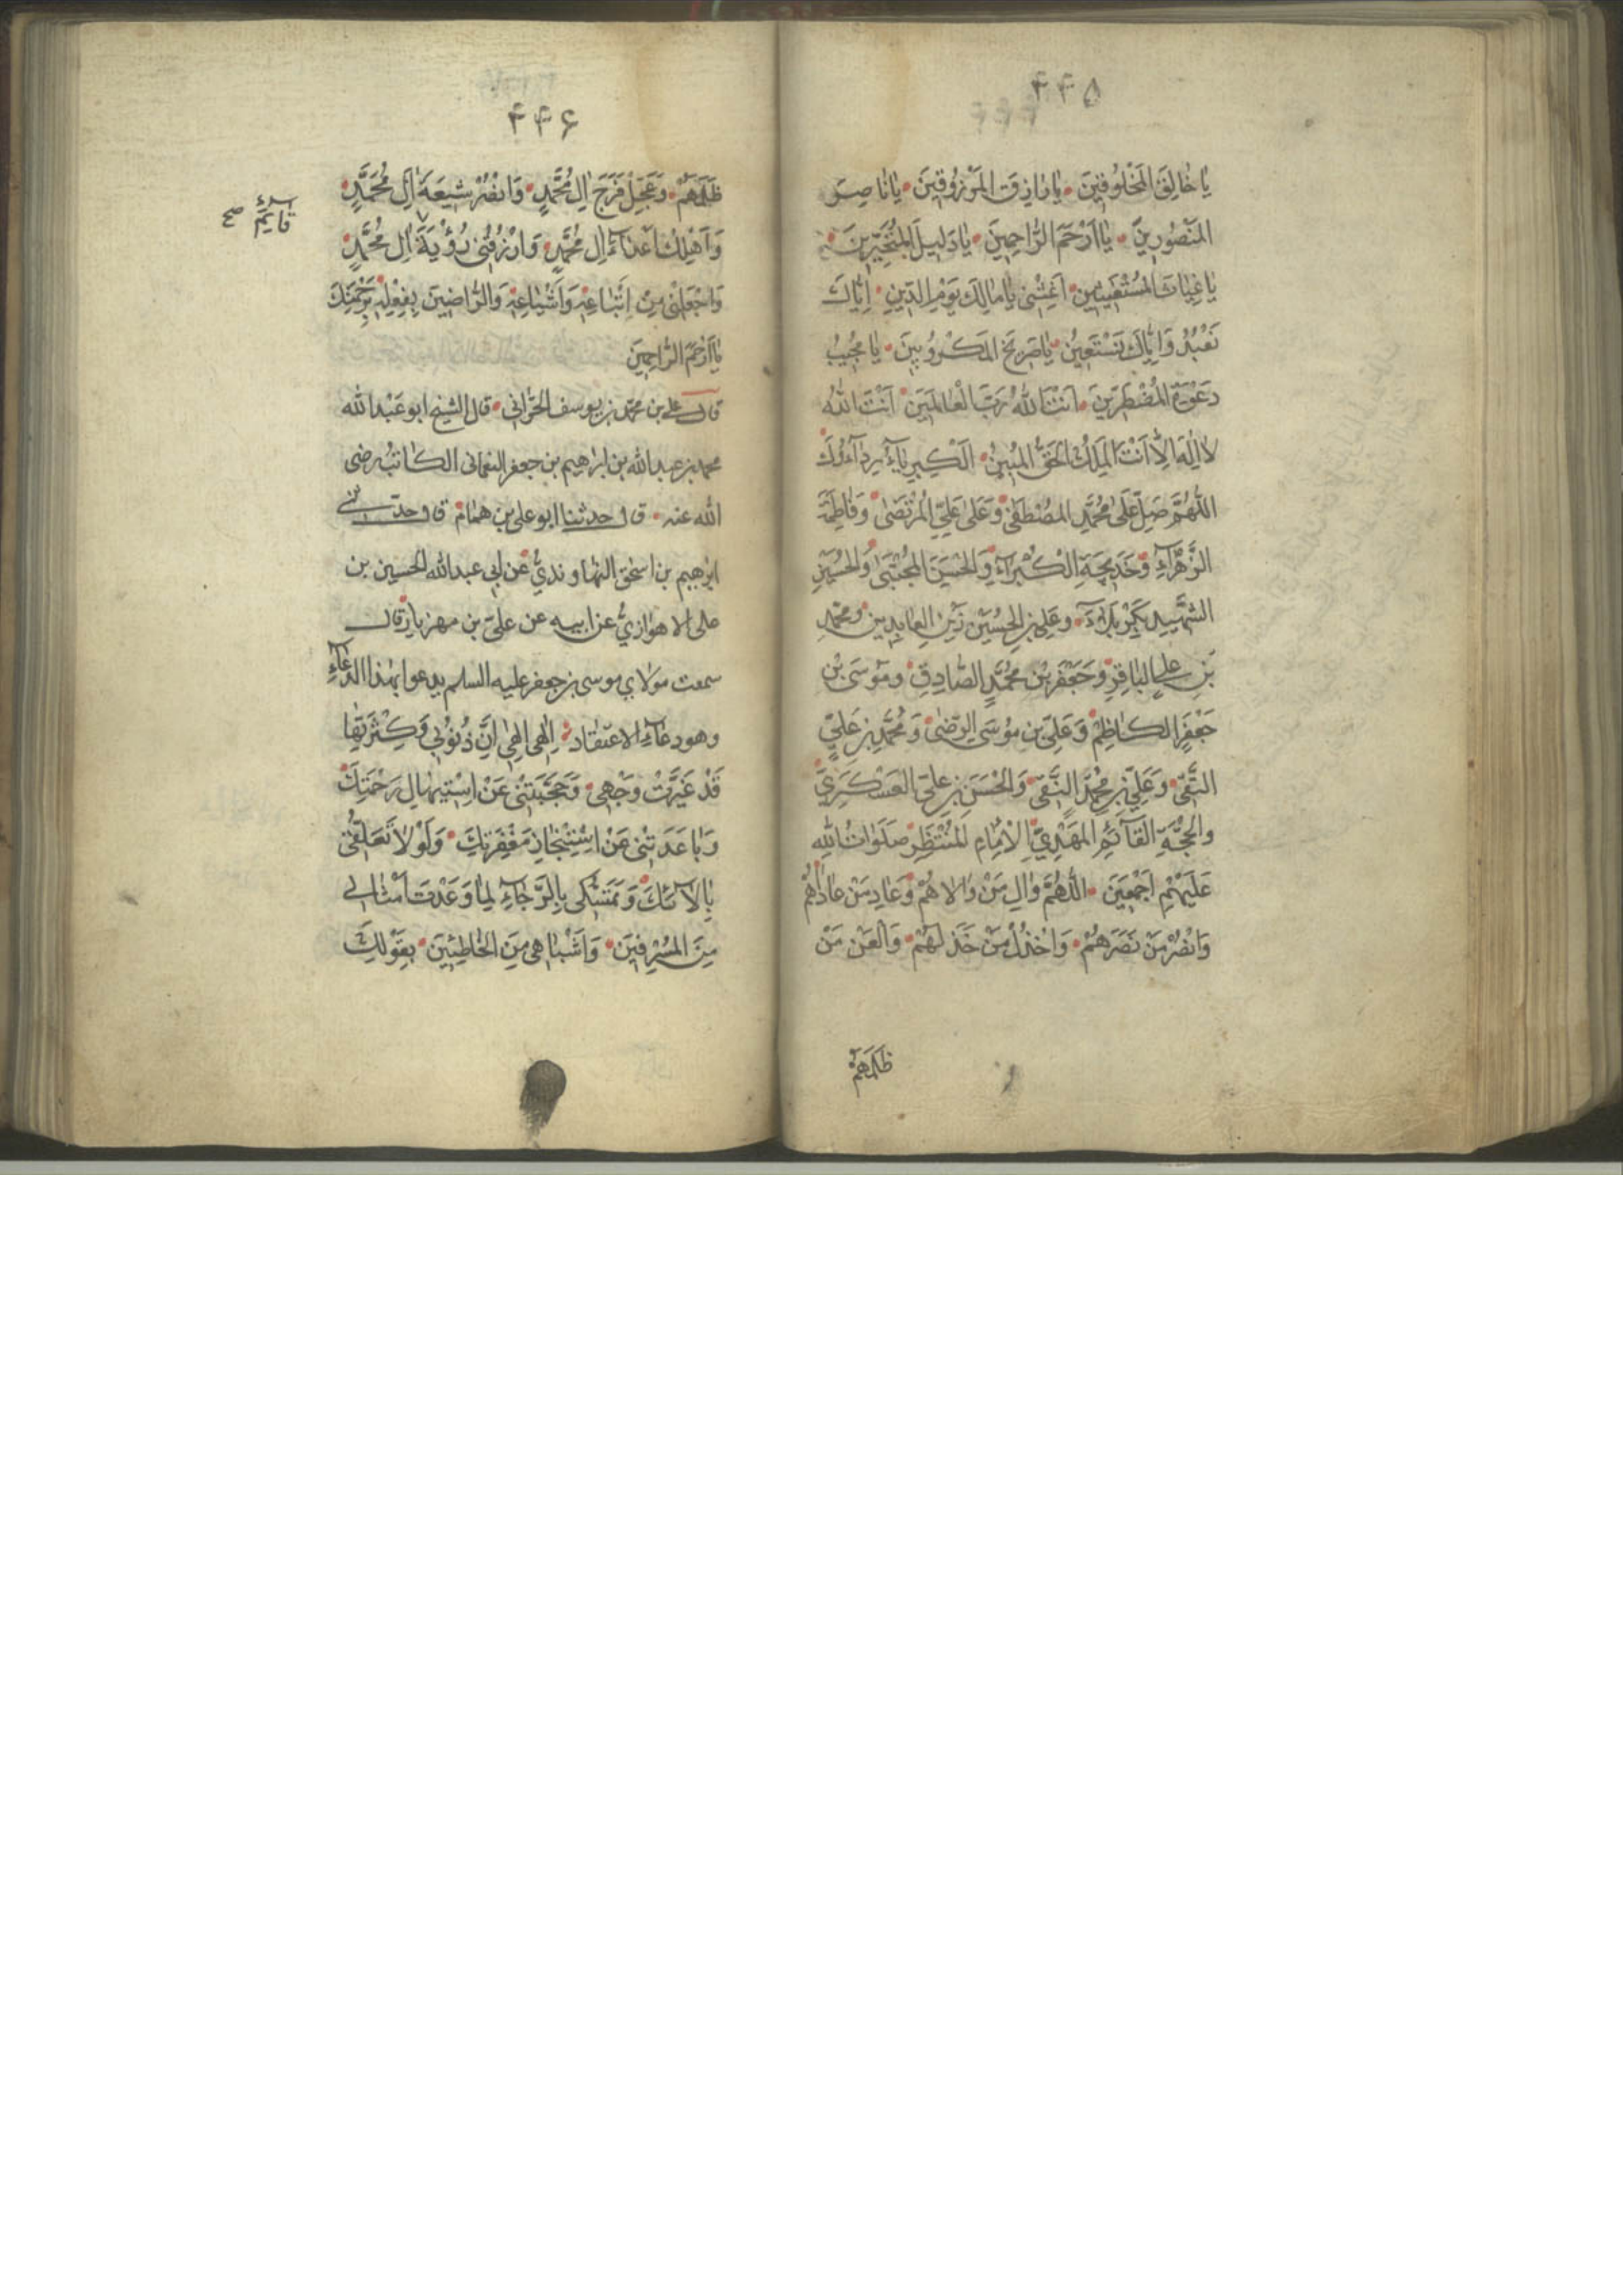 ۴۴۵
يَا خَالِقَ الْمَخْلُوقِينَ يَا رَازِقَ الْمَرْزُوقِينَ يَا نَاصِرَ
الْمَنْصُورِينَ يَا اَرْحَمَ الرَّاحِمِينَ يَا دَلِيلَ الْمُتَحَيِّرِينَ
يَا غِيَاثَ الْمُسْتَغِيثِينَ اَغِثْنِي يَا مَالِكَ يَوْمِ الدِّينِ اِيَّاكَ
نَعْبُدُ وَاِيَّاكَ نَسْتَعِينُ يَا صَرِيخَ الْمَكْرُوبِينَ يَا مُجِيبَ
دَعْوَةِ الْمُضْطَرِّينَ اَنْتَ اللهُ رَبُّ الْعَالَمِينَ اَنْتَ اللهُ
لَا اِلٰهَ اِلَّا اَنْتَ الْمَلِكُ الْحَقُّ الْمُبِينُ اَلْكِبْرِيَآءُ رِدَآءُكَ
اَللّٰهُمَّ صَلِّ عَلَى مُحَمَّدٍ الْمُصْطَفَى وَعَلَى عَلِيٍّ الْمُرْتَضَى وَفَاطِمَةَ
الزَّهْرَآءِ وَخَدِيجَةِ الْكُبْرَآءِ وَالْحَسَنِ الْمُجْتَبَى وَالْحُسَيْنِ
الشَّهِيدِ بِكَرْبَلَآءَ وَعَلِيِّ بْنِ الْحُسَيْنِ زَيْنِ الْعَابِدِينَ وَمُحَمَّدِ
بْنِ عَلِيٍّ الْبَاقِرِ وَجَعْفَرِ بْنِ مُحَمَّدٍ الصَّادِقِ وَمُوسَى بْنِ
جَعْفَرٍ الْكَاظِمِ وَعَلِيِّ بْنِ مُوسَى الرِّضَى وَمُحَمَّدِ بْنِ عَلِيٍّ
التَّقِيِّ وَعَلِيِّ بْنِ مُحَمَّدٍ النَّقِيِّ وَالْحَسَنِ بْنِ عَلِيٍّ الْعَسْكَرِيِّ
وَالْحُجَّةِ الْقَآئِمِ الْمَهْدِيِّ الْاِمَامِ الْمُنْتَظَرِ صَلَوَاتُ اللهِ
عَلَيْهِمْ اَجْمَعِينَ اَللّٰهُمَّ وَالِ مَنْ وَالَاهُمْ وَعَادِ مَنْ عَادَاهُمْ
وَانْصُرْ مَنْ نَصَرَهُمْ وَاخْذُلْ مَنْ خَذَلَهُمْ وَالْعَنْ مَنْ
ظَلَمَهُمْ
۴۴۶
ظَلَمَهُمْ وَعَجِّلْ فَرَجَ اٰلِ مُحَمَّدٍ وَانْصُرْ شِيعَةَ اٰلِ مُحَمَّدٍ
وَاَهْلِكْ اَعْدَآءَ اٰلِ مُحَمَّدٍ وَارْزُقْنِي رُؤْيَةَ اٰلِ مُحَمَّدٍ
قايم صح
وَاجْعَلْنِي مِنْ اَتْبَاعِهِ وَاَشْيَاعِهِ وَالرَّاضِينَ بِفِعْلِهِ بِرَحْمَتِكَ
يَا اَرْحَمَ الرَّاحِمِينَ
قال علي بن محمد بن يوسف الحراني قال الشيخ ابو عبدالله
محمد بن عبدالله بن ابراهيم بن جعفر النعمانى الكاتب رضى
الله عنه قال حدثنا ابو على بن همام قال حدثنى
ابراهيم بن اسحق النهاوندي عن ابي عبدالله الحسين بن
على الاهوازي عن ابيه عن علي بن مهزيار قال
سمعت مولاي موسى بن جعفر عليه السلم يدعوا بهذا الدعاء
وهو دعاء الاعتقاد اِلٰهِي اِلٰهِي اِنَّ ذُنُوبِي وَكَثْرَتَهَا
قَدْ غَيَّرَتْ وَجْهِي وَحَجَبَتْنِي عَنِ اسْتِيهَالِ رَحْمَتِكَ
وَبَاعَدَتْنِي عَنِ اسْتِنْجَازِ مَغْفِرَتِكَ وَلَوْلَا تَعَلُّقِي
بِاٰلَآئِكَ وَتَمَسُّكِي بِالرَّجَآءِ لِمَا وَعَدْتَ اَمْثَالِي
مِنَ الْمُسْرِفِينَ وَاَشْبَاهِي مِنَ الْخَاطِئِينَ بِقَوْلِكَ